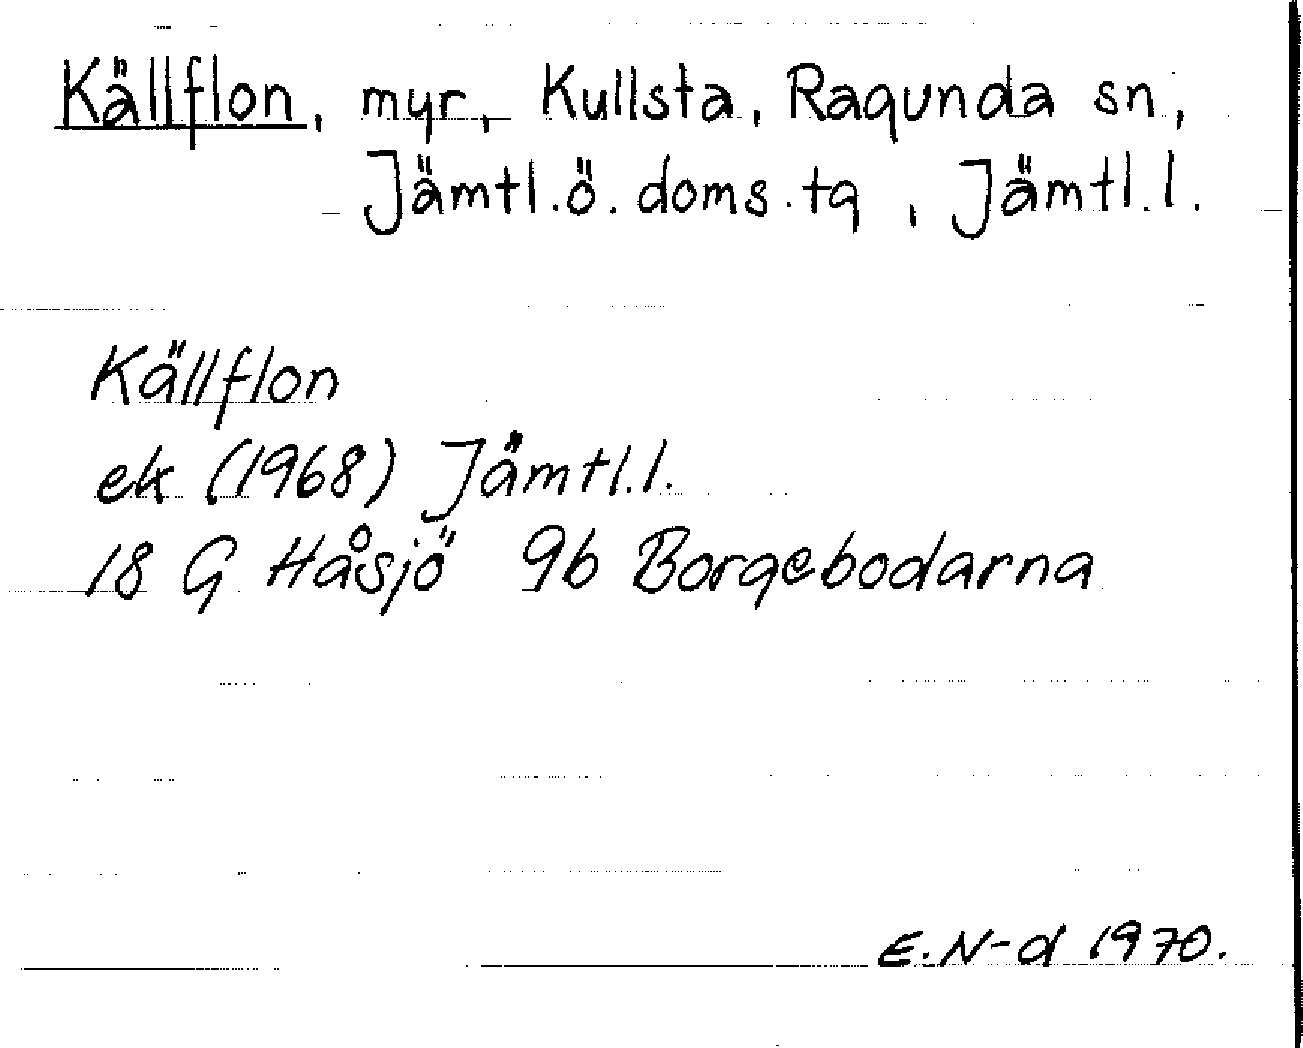 Källflon, myr, Kullsta, Ragunda sn,
Jämtl.ö.doms.tg, Jämtl.l.
Källflon
ek (1968) Jämtl.l.
18 G Håsjö 9b Borgebodarna
E.N-d 1970.